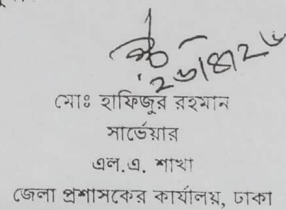 মোঃ হাফিজুর রহমান
সার্ভেয়ার
এল.এ. শাখা
জেলা প্রশাসকের কার্যালয়, ঢাকা